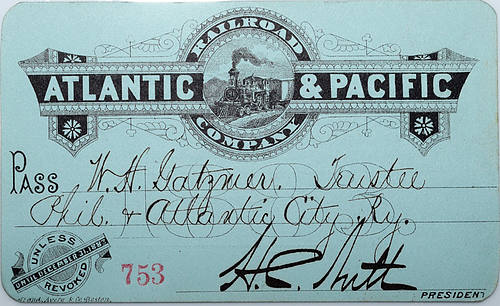 RAILROAD
ATLANTIC & PACIFIC
COMPANY
PASS W. H. Gatzmer, Trustee
Phil. & Atlantic City Ry.
UNLESS
UNTIL DECEMBER 31,
REVOKED
753
H. C. Nutt
PRESIDENT